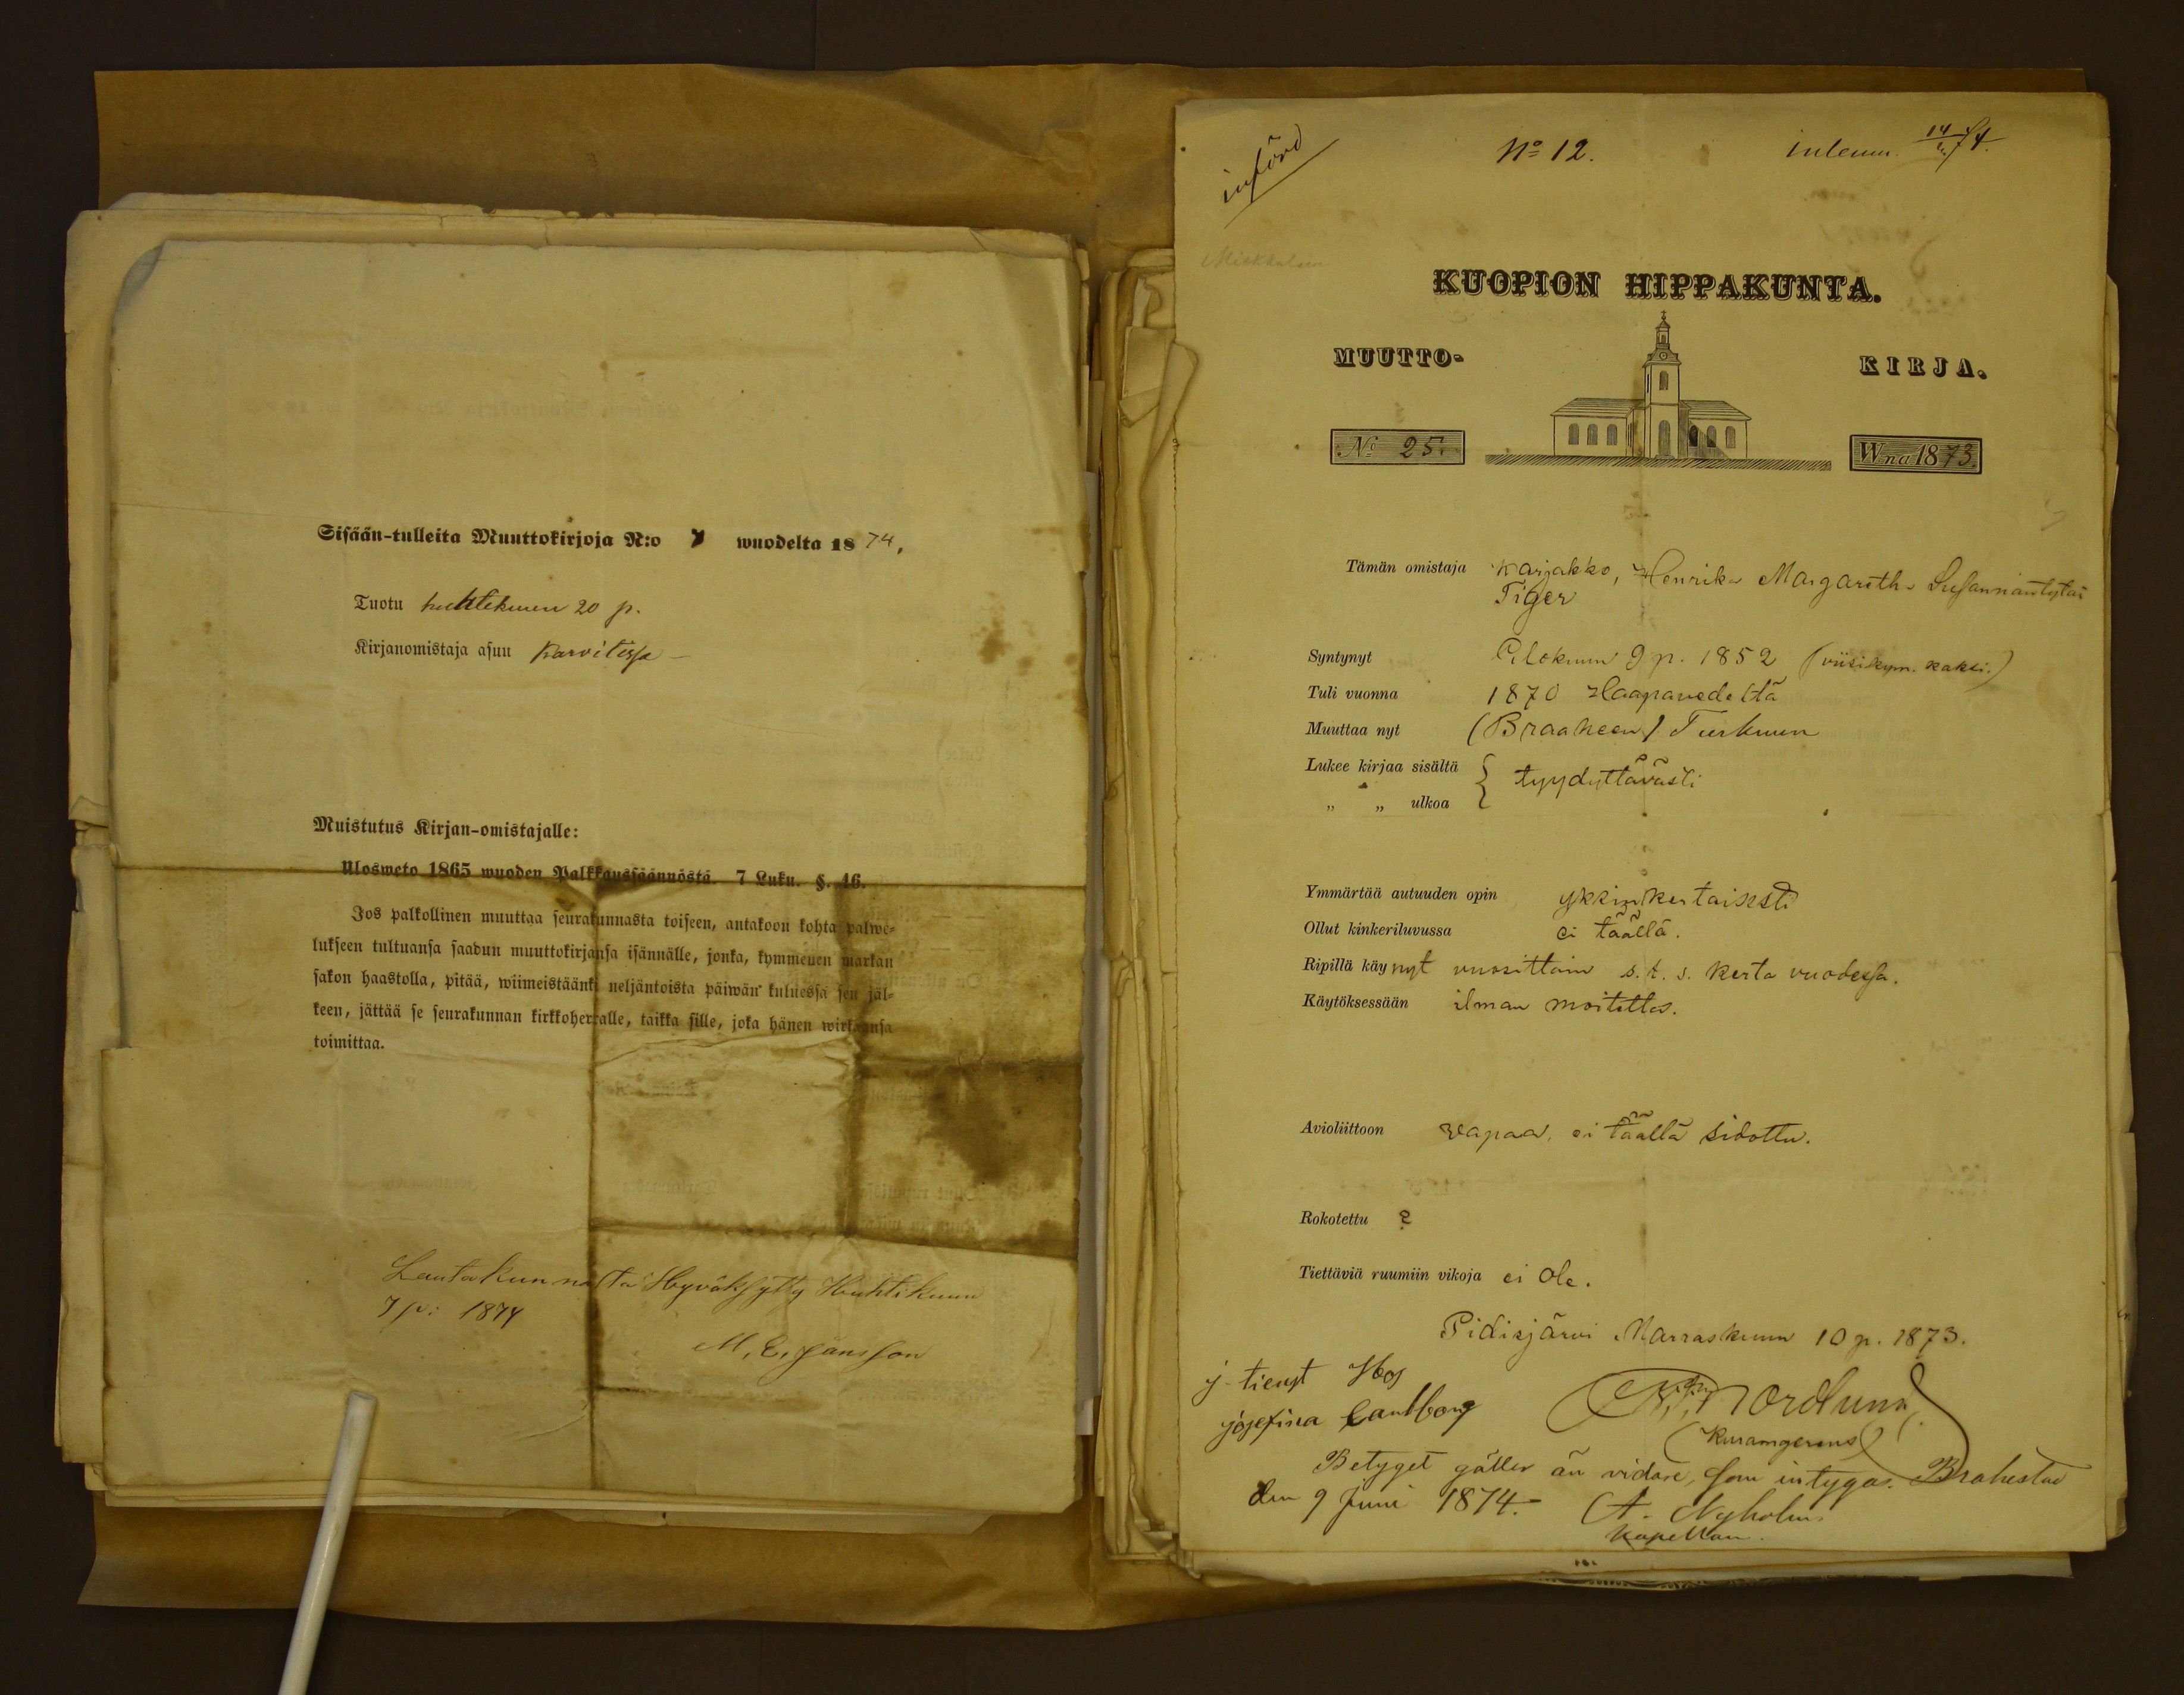 Sisään-tulleita Muuttokirjoja N:o 7 wuodelta 1874,
Tuotu huhtekuun 20 p.
Kirjanomistaja asuu Karvitissa
Muistutus Kirjan-omistajalle:
Ulosweto 1865 wuoden Palkkaussäännöstä. 7 Luku. §. 46.
Jos palkollinen muuttaa seurakunnasta toiseen, antakoon kohta palwe-
lukseen tultuansa saadun muuttokirjansa isännälle, jonka, kymmenen markan
sakon haastolla, pitää, wiimeistäänki neljäntoista päiwän kuluessa sen jäl-
keen, jättää se seurakunnan kirkkoherralle, taikka sille, joka hänen wirkaansa
toimittaa.
Lautakunnasta Hyväksytty Huhtikuun
7 p: 1874
M. E. Jansson
införd
No 12.
inlemn. 14/6 74.
KUOPION HIPPAKUNTA.
MUUTTO- KIRJA.
No 25. Wna 1873.
Tämän omistaja Karjakko, Henrika Margareth Susannantytär
Tiger
Syntynyt Elokuun 9 p. 1852 (viisikym. kaksi.)
Tuli vuonna 1870 Haapavedeltä
Muuttaa nyt (Braaheen) Turkuun
Lukee kirjaa sisältä { tyydyttävästi
„ „ ulkoa
Ymmärtää autuuden opin ykkinkertaisesti
Ollut kinkeriluvussa ei täällä.
Ripillä käynyt vuosittain s. t. s. kerta vuodessa.
Käytöksessään ilman moitetta.
Avioliittoon vapaa, ei täällä sidottu.
Rokotettu ?
Tiettäviä ruumiin vikoja ei ole.
Pidisjärvi Marraskuun 10 p. 1873.
j tienst Hos
josefina
Nordlund
Betyget gäller än vidare, som intygas. Brahestad
den 9 Juni 1874. A. Nyholm
Kapellan.